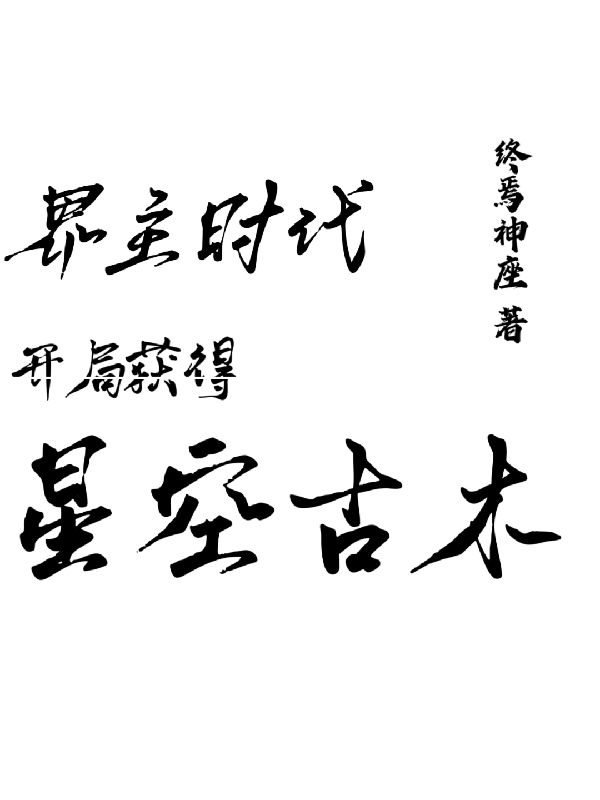 界主时代
开局获得
星空古木
终焉神座 著